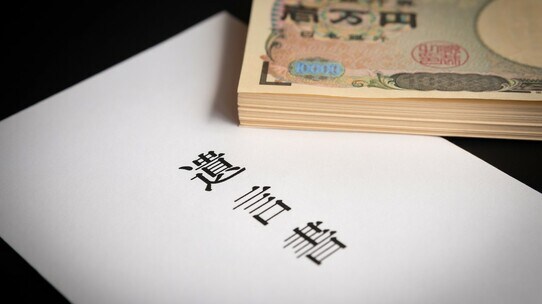 壱万円
遺言書